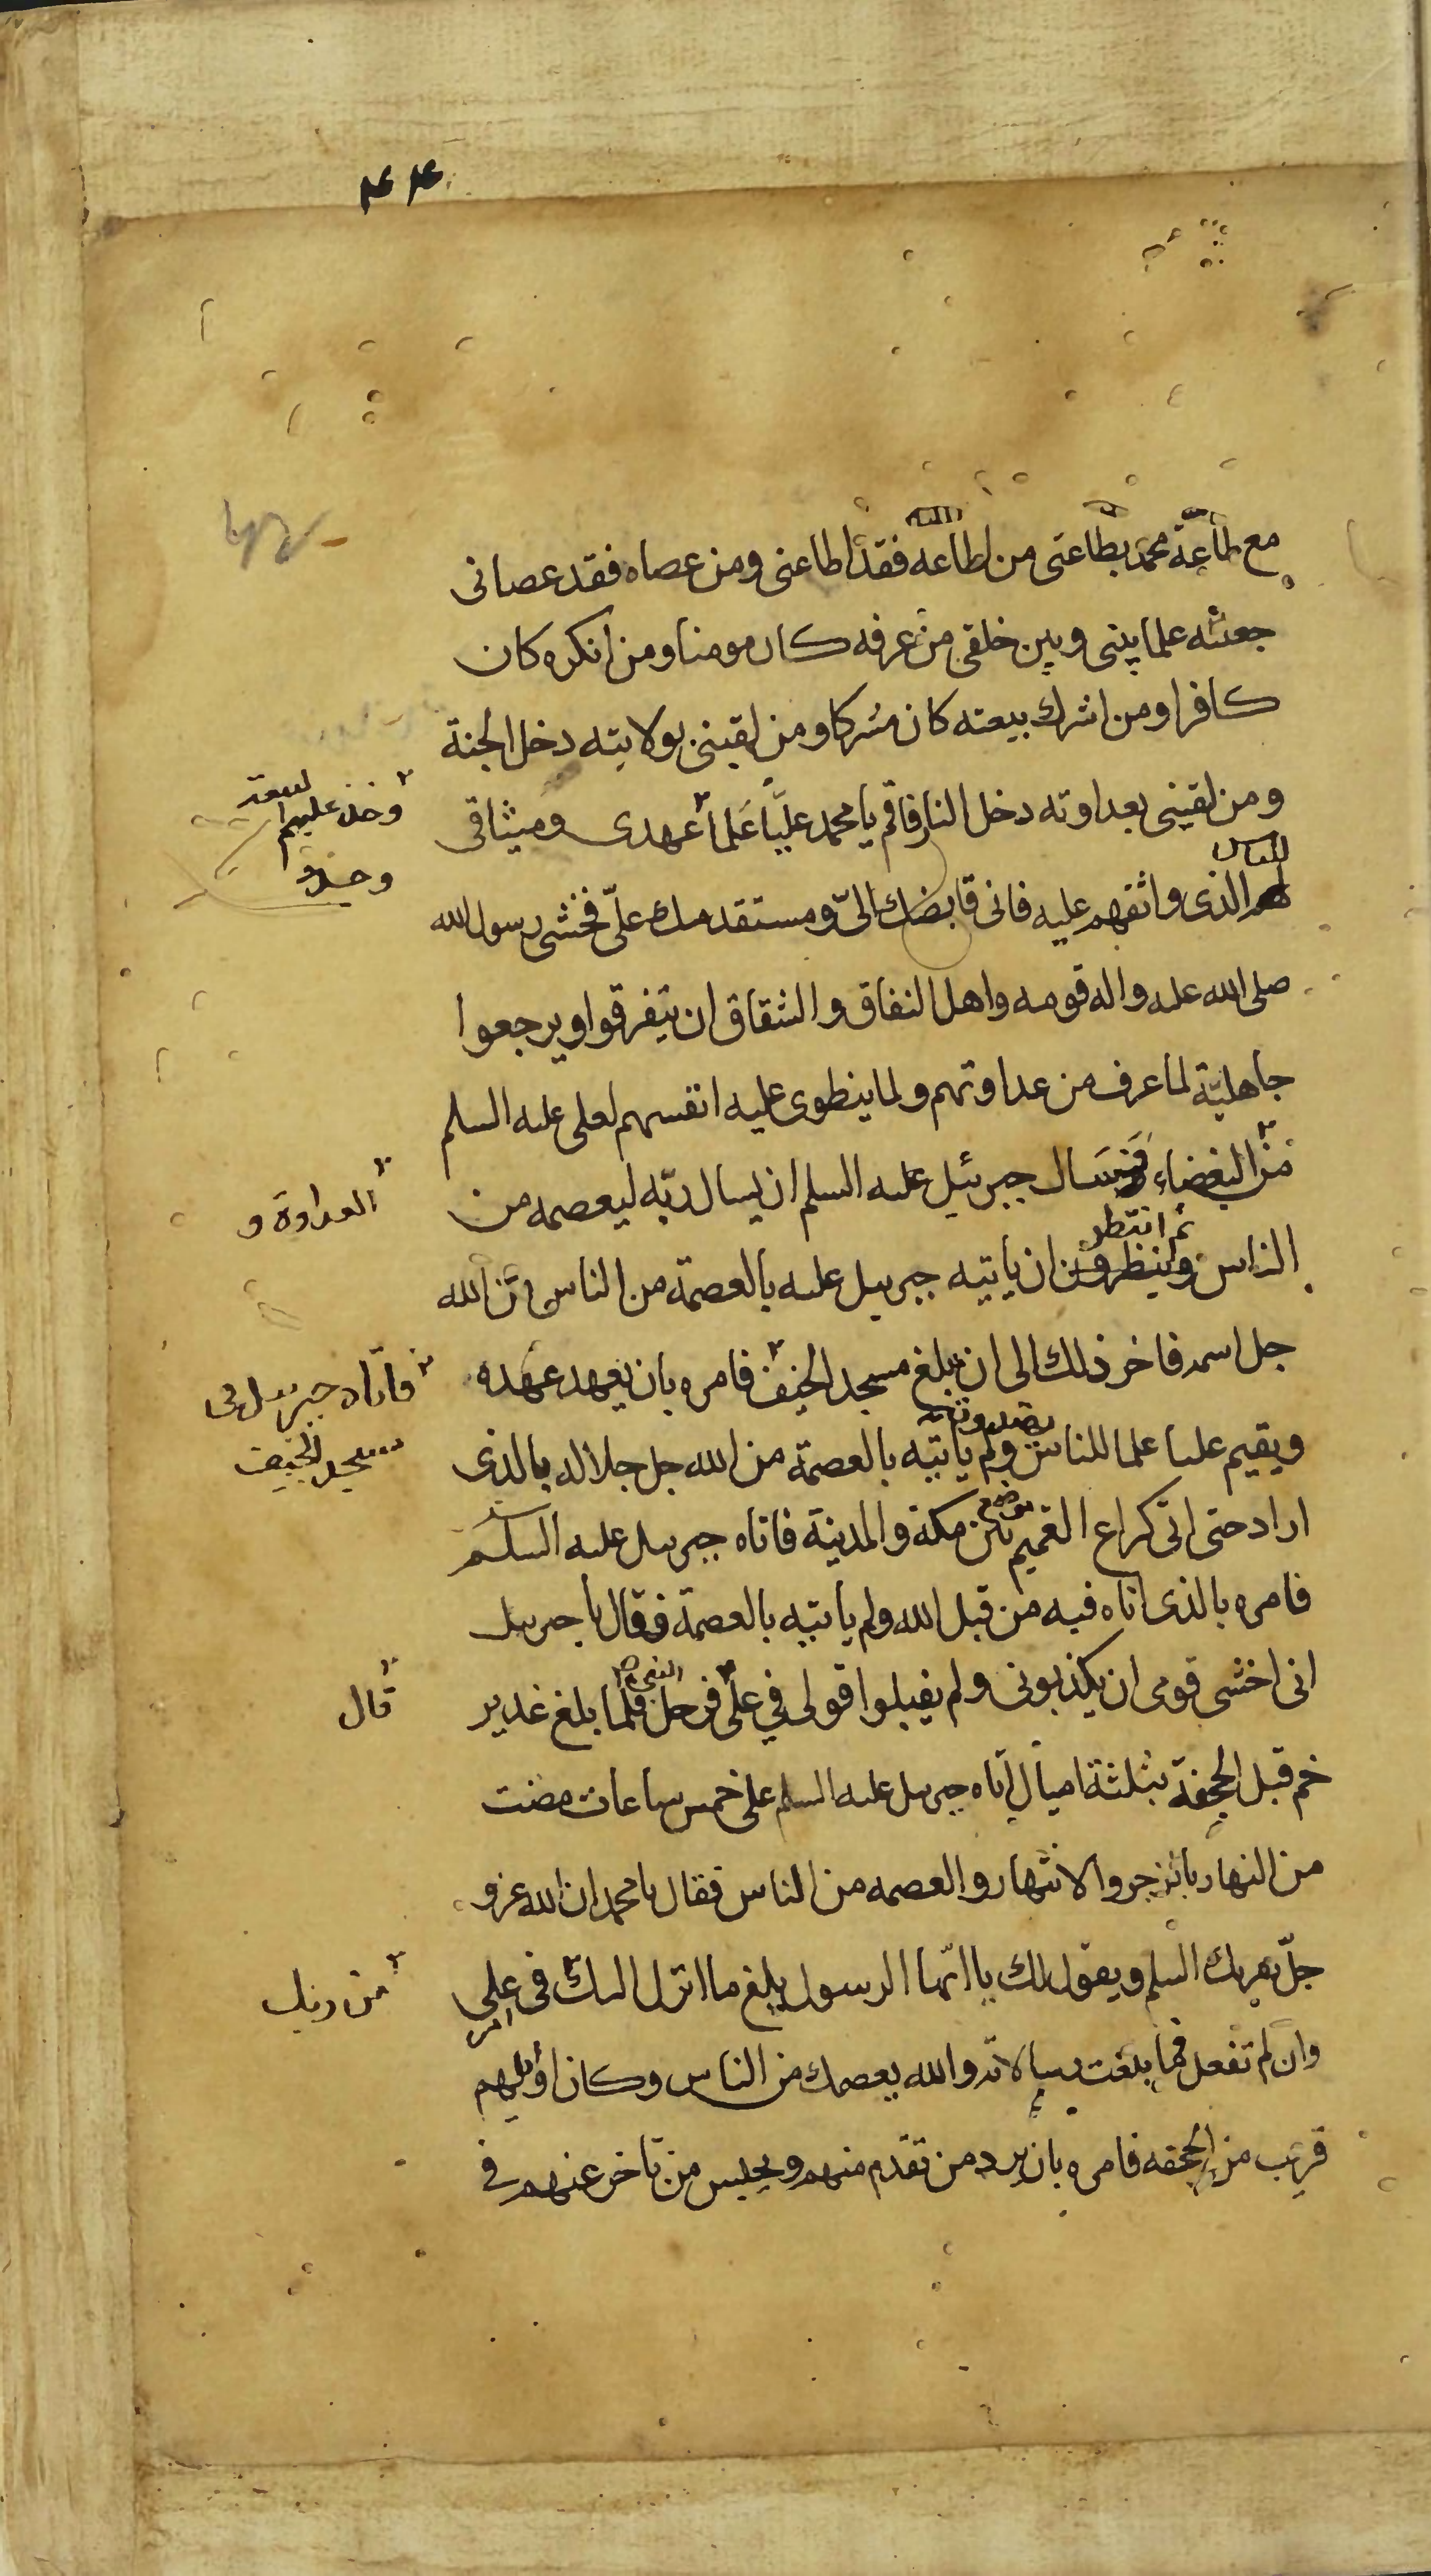 ۴۴
مع طاعة محمد بطاعتى من اطاعه فقد اطاعنى ومن عصاه فقد عصانى
جعلته علما بينى وبين خلقى من عرفه كان مومنا ومن انكره كان
كافرا ومن اشرك ببيعته كان مشركا ومن لقينى بولايته دخل الجنة
ومن لقينى بعداوته دخل النار فاقم يا محمد عليّا علما عهدى وميثاقى
وخذ عليهم
للناس
الذى واثقهم عليه فانى قابضك الىّ ومستقدمك علىّ فخشى رسول الله
صلى الله عليه واله قومه واهل النفاق والشقاق ان يتفرقوا ويرجعوا
جاهليّة لما عرف من عداوتهم ولما ينطوى عليه انفسهم لعلى عليه السلم
من البغضاء فسال جبرئيل عليه السلم ان يسال ربّه ليعصمه من
العداوة و
ثم انتظر
الناس وينتظرون ان ياتيه جبرئيل عليه بالعصمة من الناس من الله
جل اسمه فاخر ذلك الى ان بلغ مسجد الخيف فامره بان يعهد عهده
فاتاه جبرئيل فى
مسجد الخيف
ويقيم عليا علما للناس ولم ياتيه بالعصمة من الله جل جلاله بالذى
اراد حتى اتى كراع الغميم بين مكة والمدينة فاتاه جبرئيل عليه السلم
فامره بالذى اتاه فيه من قبل الله ولم ياتيه بالعصمة فقال يا جبرئيل
انى اخشى قومى ان يكذبونى ولم يقبلوا قولى في علىّ فرحل فلما بلغ غدير
قال
خم قبل الجحفة بثلثة اميال اتاه جبرئيل عليه السلم على خمس ساعات مضت
من النهار بالزجر والانتهار والعصمه من الناس فقال يا محمد ان الله عز و
جلّ يقرئك السلم ويقول لك يا ايّها الرسول بلغ ما انزل اليك فى على
من ربك
وان لم تفعل فما بلغت رسالاته والله يعصمك من الناس وكان اوّلهم
قريب من الجحفه فامره بان يرد من تقدم منهم ويحبس من تاخر عنهم في